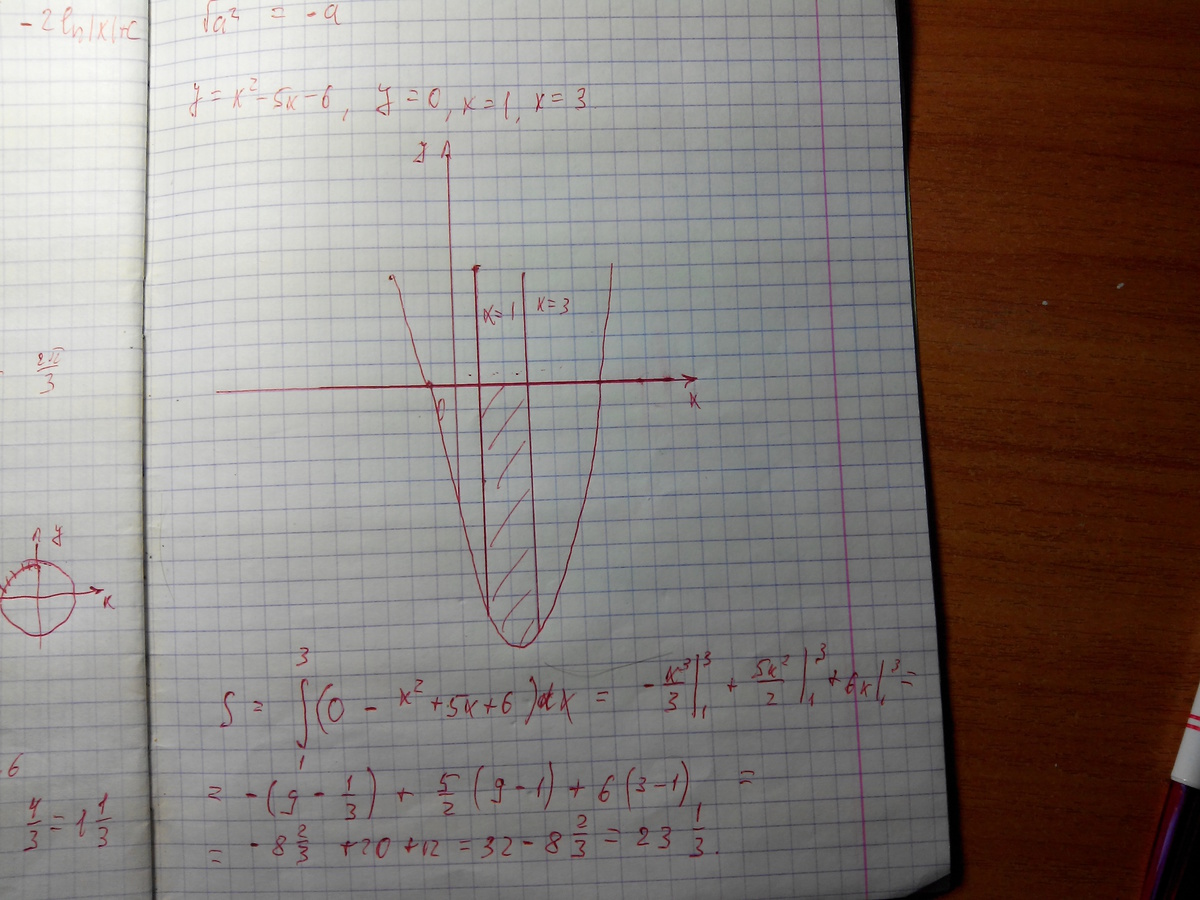 -2 ln|x|+c
√a² = -a
y = x² - 5x - 6, y = 0, x = 1, x = 3
y
x=1 x=3
0
x
2π/3
y
x
S = ∫₁³ (0 - x² + 5x + 6) dx = - x³/3 |₁³ + 5x²/2 |₁³ + 6x |₁³ =
= - (9 - 1/3) + 5/2 (9 - 1) + 6 (3 - 1) =
= - 8 2/3 + 20 + 12 = 32 - 8 2/3 = 23 1/3.
6
4/3 = 1 1/3